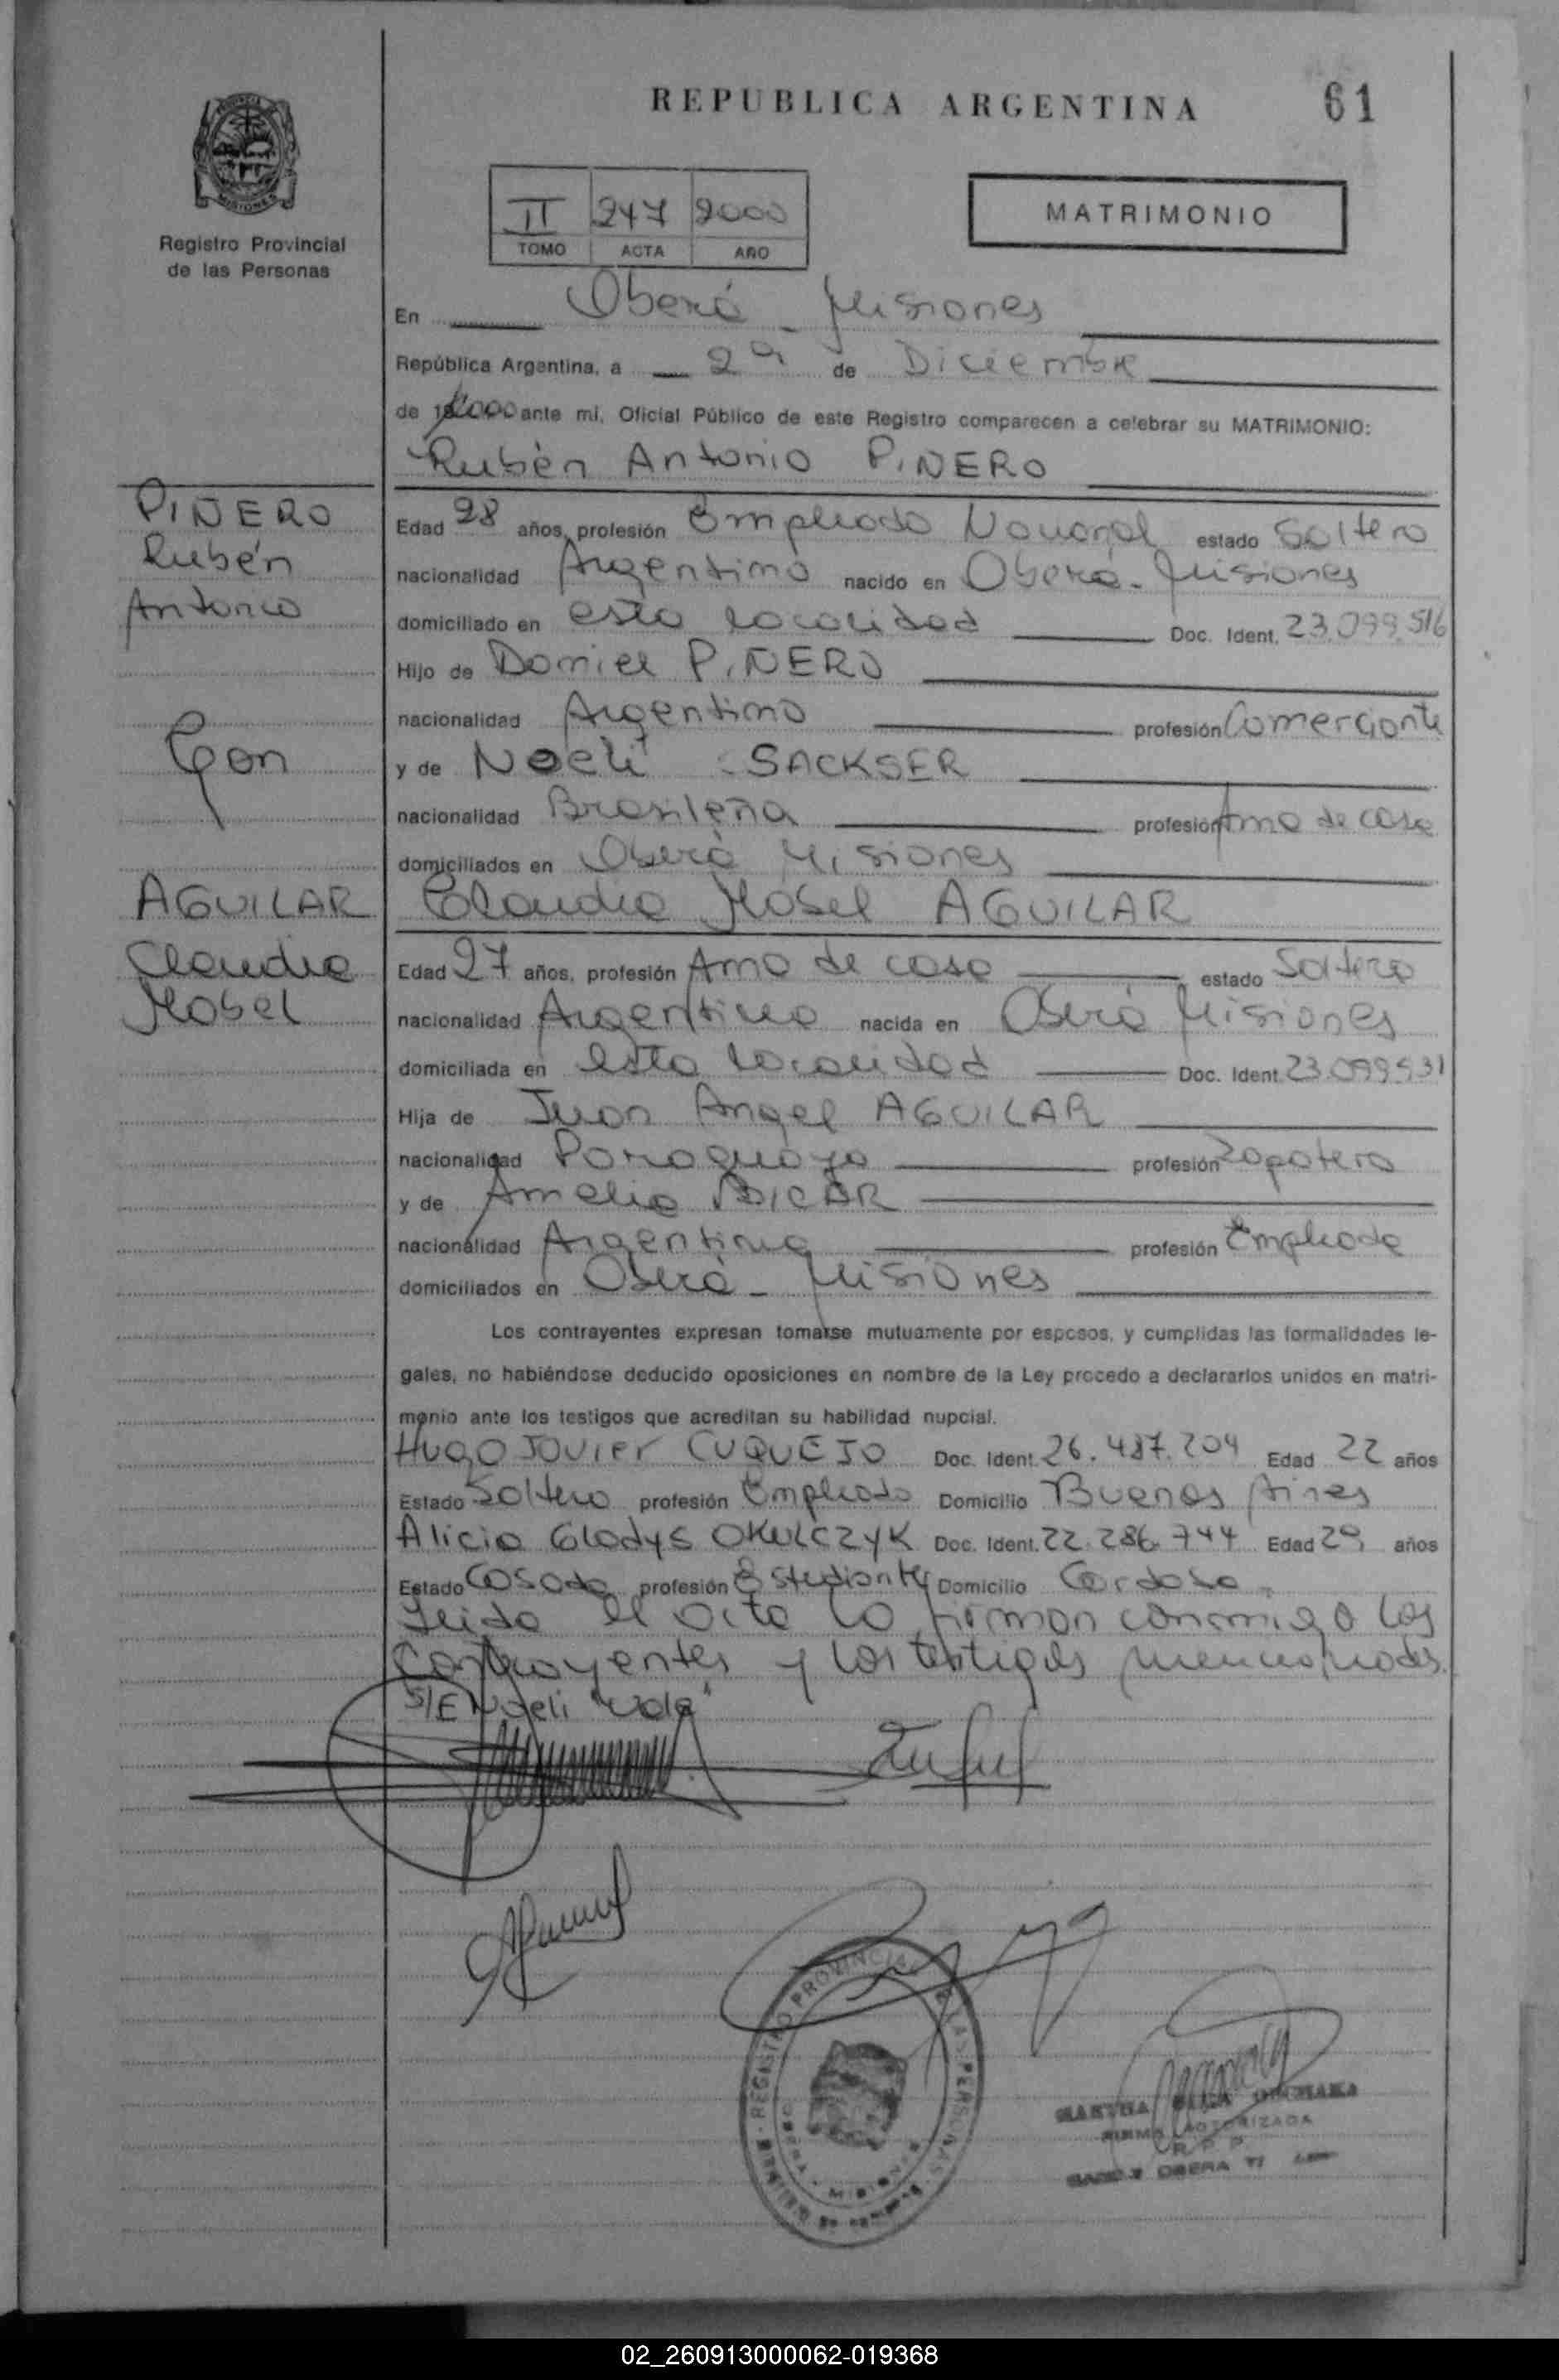 REPUBLICA ARGENTINA
61
Registro Provincial
de las Personas
II 247 2000
TOMO ACTA AÑO
MATRIMONIO
En Oberá - Misiones
República Argentina, a de Diciembre
de 2000 ante mi, Oficial Público de este Registro comparecen a celebrar su MATRIMONIO:
Rubén Antonio PIÑERO
PIÑERO
Rubén
Antonio
Con
AGUILAR
Claudia
Mabel
Edad 28 años, profesión Empleado Nacional estado Soltero
nacionalidad Argentino nacido en Oberá - Misiones
domiciliado en esta localidad Doc. Ident. 23.099.516
Hijo de Daniel PIÑERO
nacionalidad Argentino profesión Comerciante
y de Noeli SACKSER
nacionalidad Brasileña profesión Ama de casa
domiciliados en Oberá Misiones
Claudia Mabel AGUILAR
Edad 27 años, profesión Ama de casa estado Soltera
nacionalidad Argentina nacida en Oberá Misiones
domiciliada en esta localidad Doc. Ident. 23.099.531
Hija de Juan Angel AGUILAR
nacionalidad Paraguayo profesión Zapatero
y de Amelia
nacionalidad Argentina profesión Empleada
domiciliados en Oberá - Misiones
Los contrayentes expresan tomarse mutuamente por esposos, y cumplidas las formalidades le-
gales, no habiéndose deducido oposiciones en nombre de la Ley procedo a declararlos unidos en matri-
monio ante los testigos que acreditan su habilidad nupcial.
Hugo Javier CUQUEJO Doc. Ident. 26.487.204 Edad 22 años
Estado Soltero profesión Empleado Domicilio Buenos Aires
Alicia Gladys OKULCZYK Doc. Ident. 22.286.744 Edad 29 años
Estado Casada profesión Estudiante Domicilio Cordoba
Leida el acta la firman conmigo los
Contrayentes y los testigos mencionados.
S/E Noeli "Vale"
REGISTRO PROVINCIAL DE LAS PERSONAS
MARTHA
FIRMA AUTORIZADA
R. P. P.
OBERA
02_260913000062-019368